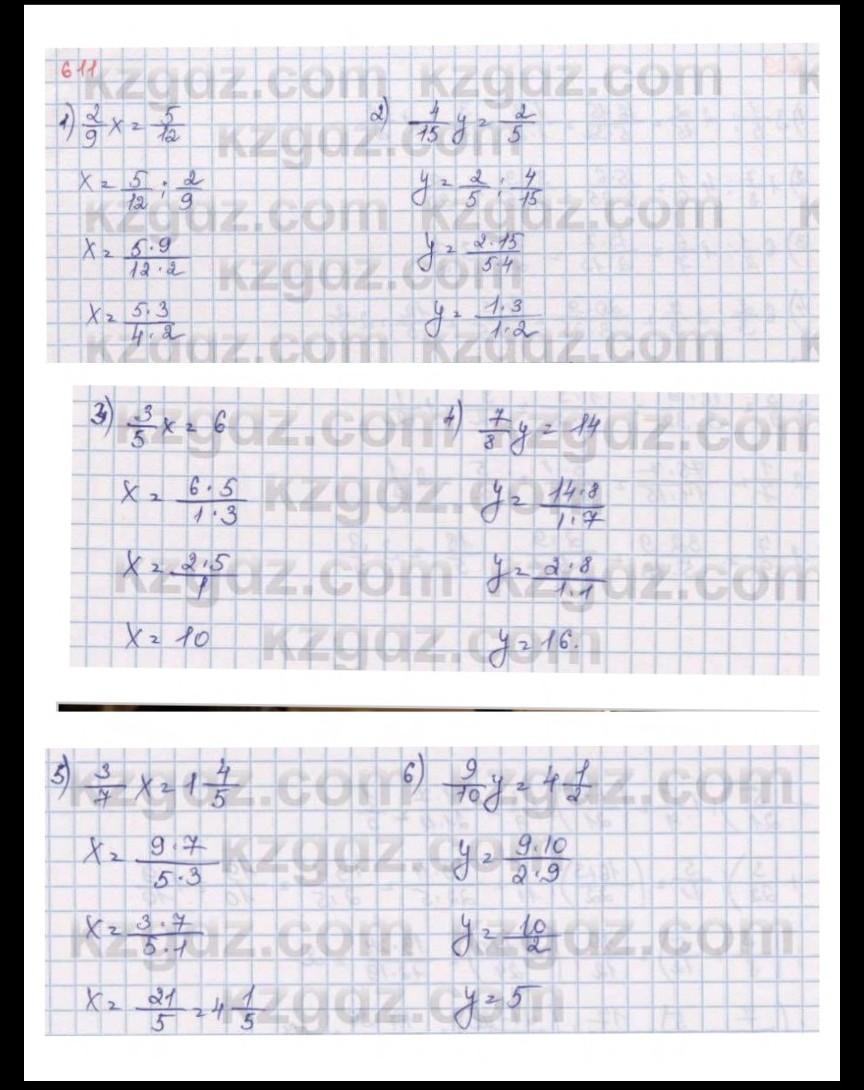 611
1) 2/9 x = 5/12
x = 5/12 : 2/9
x = 5·9/12·2
x = 5·3/4·2
2) 4/15 y = 2/5
y = 2/5 : 4/15
y = 2·15/5·4
y = 1·3/1·2
3) 3/5 x = 6
x = 6·5/1·3
x = 2·5/1
x = 10
4) 7/8 y = 14
y = 14·8/1·7
y = 2·8/1·1
y = 16.
5) 3/7 x = 1 4/5
x = 9·7/5·3
x = 3·7/5·1
x = 21/5 = 4 1/5
6) 9/10 y = 4 1/2
y = 9·10/2·9
y = 10/2
y = 5
kzgdz.com